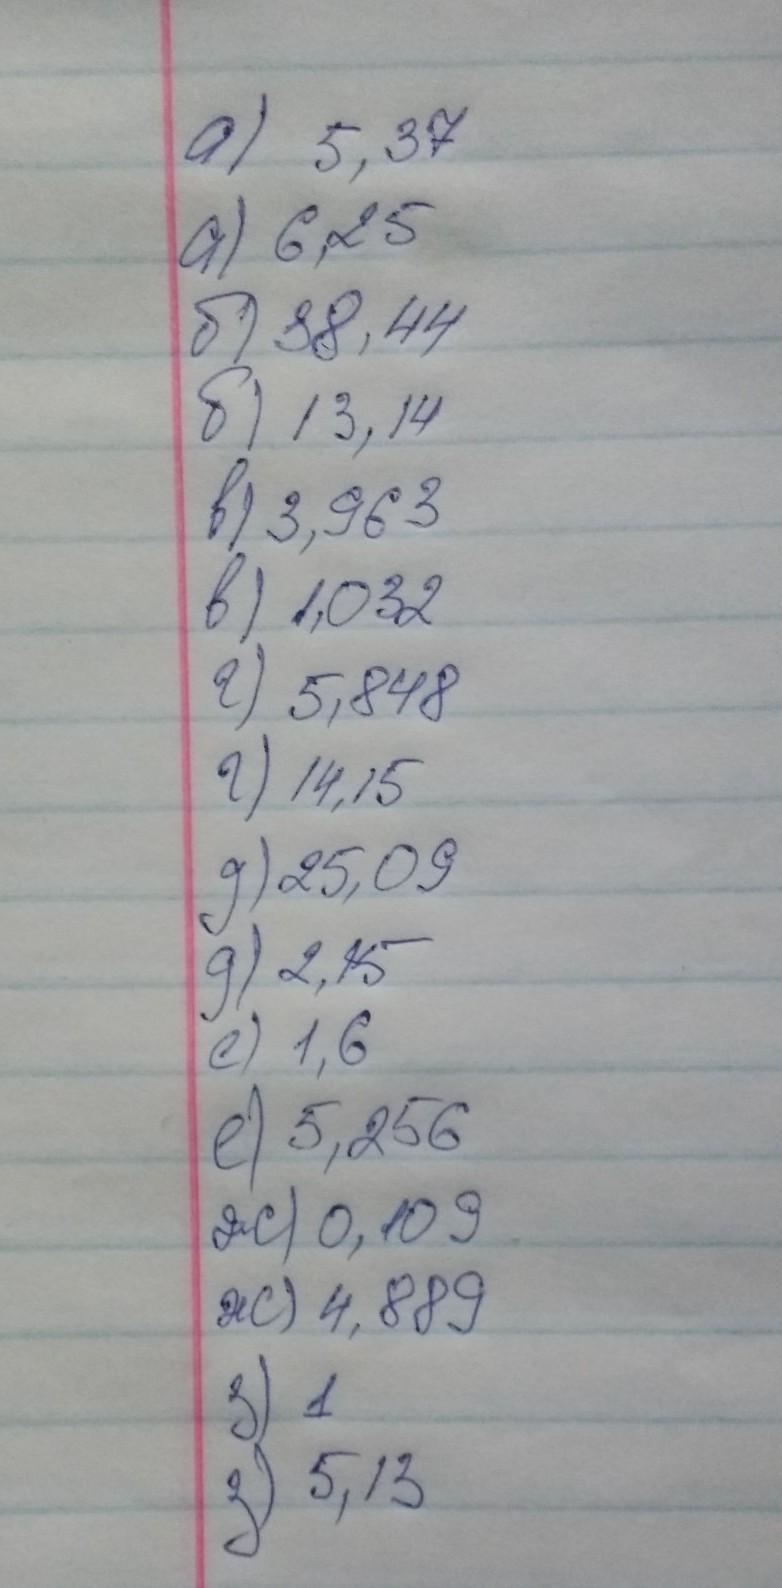 а) 5,37
а) 6,25
б) 38,44
б) 13,14
в) 3,963
в) 1,032
г) 5,848
г) 14,15
д) 25,09
д) 2,15
е) 1,6
е) 5,256
ж) 0,109
ж) 4,889
з) 1
з) 5,13